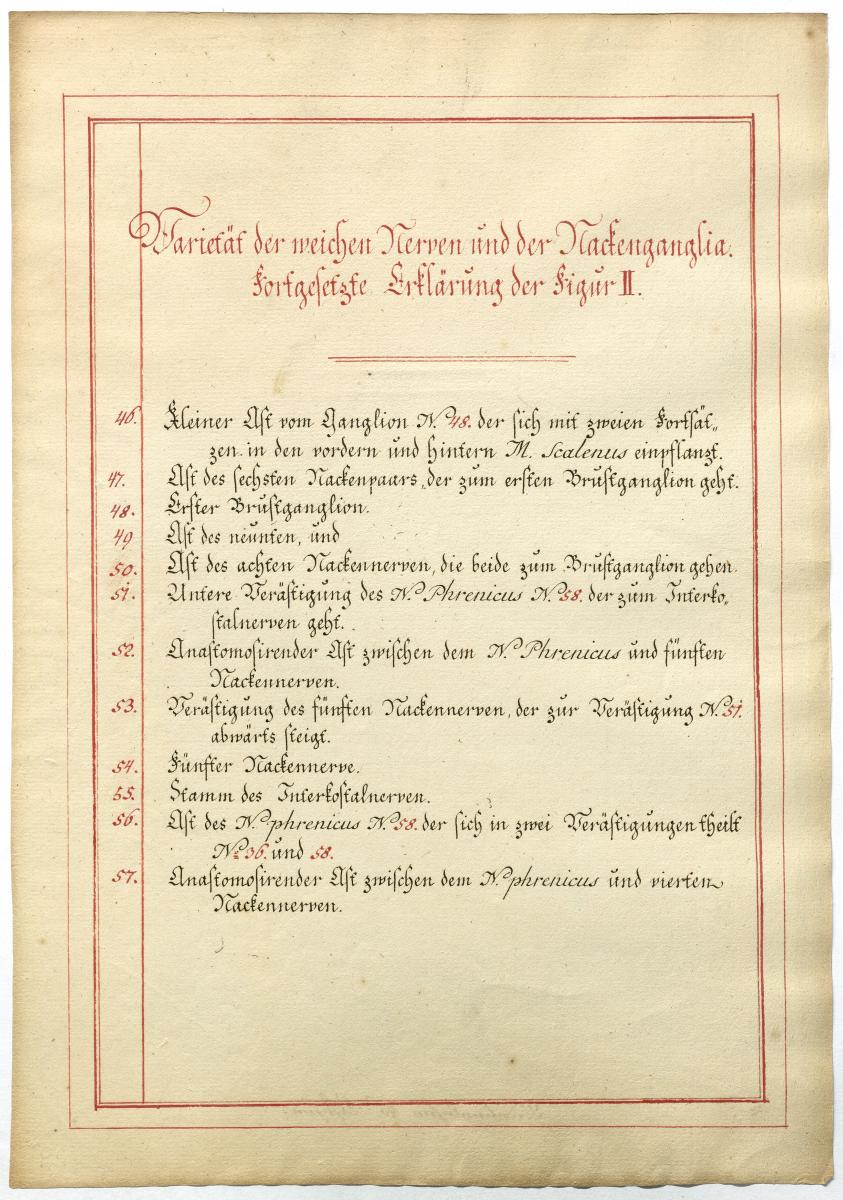 Varietät der weichen Nerven und der Nackenganglia.
Fortgesetzte Erklärung der Figur II.
46. Kleiner Ast vom Ganglion N. 48. der sich mit zweien Fortsät„
zen in den vordern und hintern M. Scalenus einpflanzt.
47. Ast des sechsten Nackenpaars, der zum ersten Brustganglion geht.
48. Erster Brustganglion.
49 Ast des neunten, und
50. Ast des achten Nackennerven, die beide zum Brustganglion gehen.
51. Untere Verästigung des N. Phrenicus N. 58. der zum Interko„
stalnerven geht.
52. Anastomosirender Ast zwischen dem N. Phrenicus und fünften
Nackennerven.
53. Verästigung des fünften Nackennerven, der zur Verästigung N. 51.
abwärts steigt.
54. Fünfter Nackennerve.
55. Stamm des Interkostalnerven.
56. Ast des N. phrenicus N. 58. der sich in zwei Verästigungen theilt
N. 36. und 58.
57. Anastomosirender Ast zwischen dem N. phrenicus und vierten
Nackennerven.